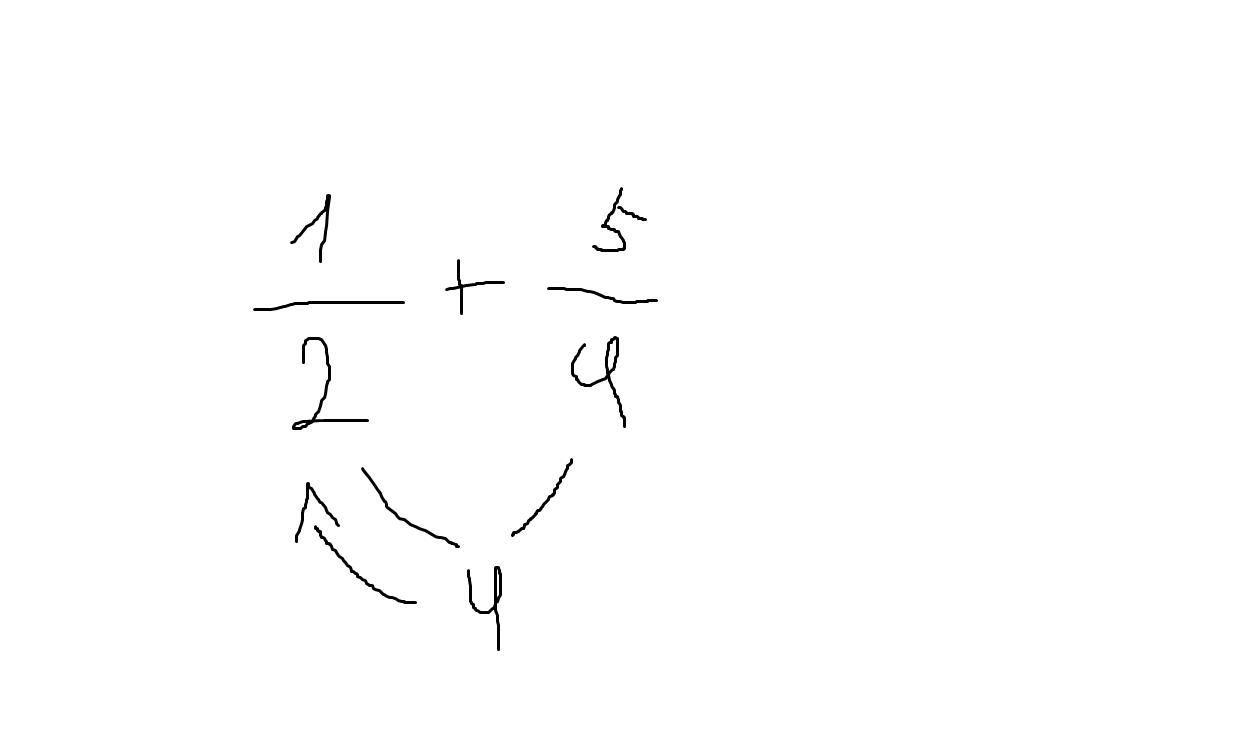 1/2 + 5/4
4